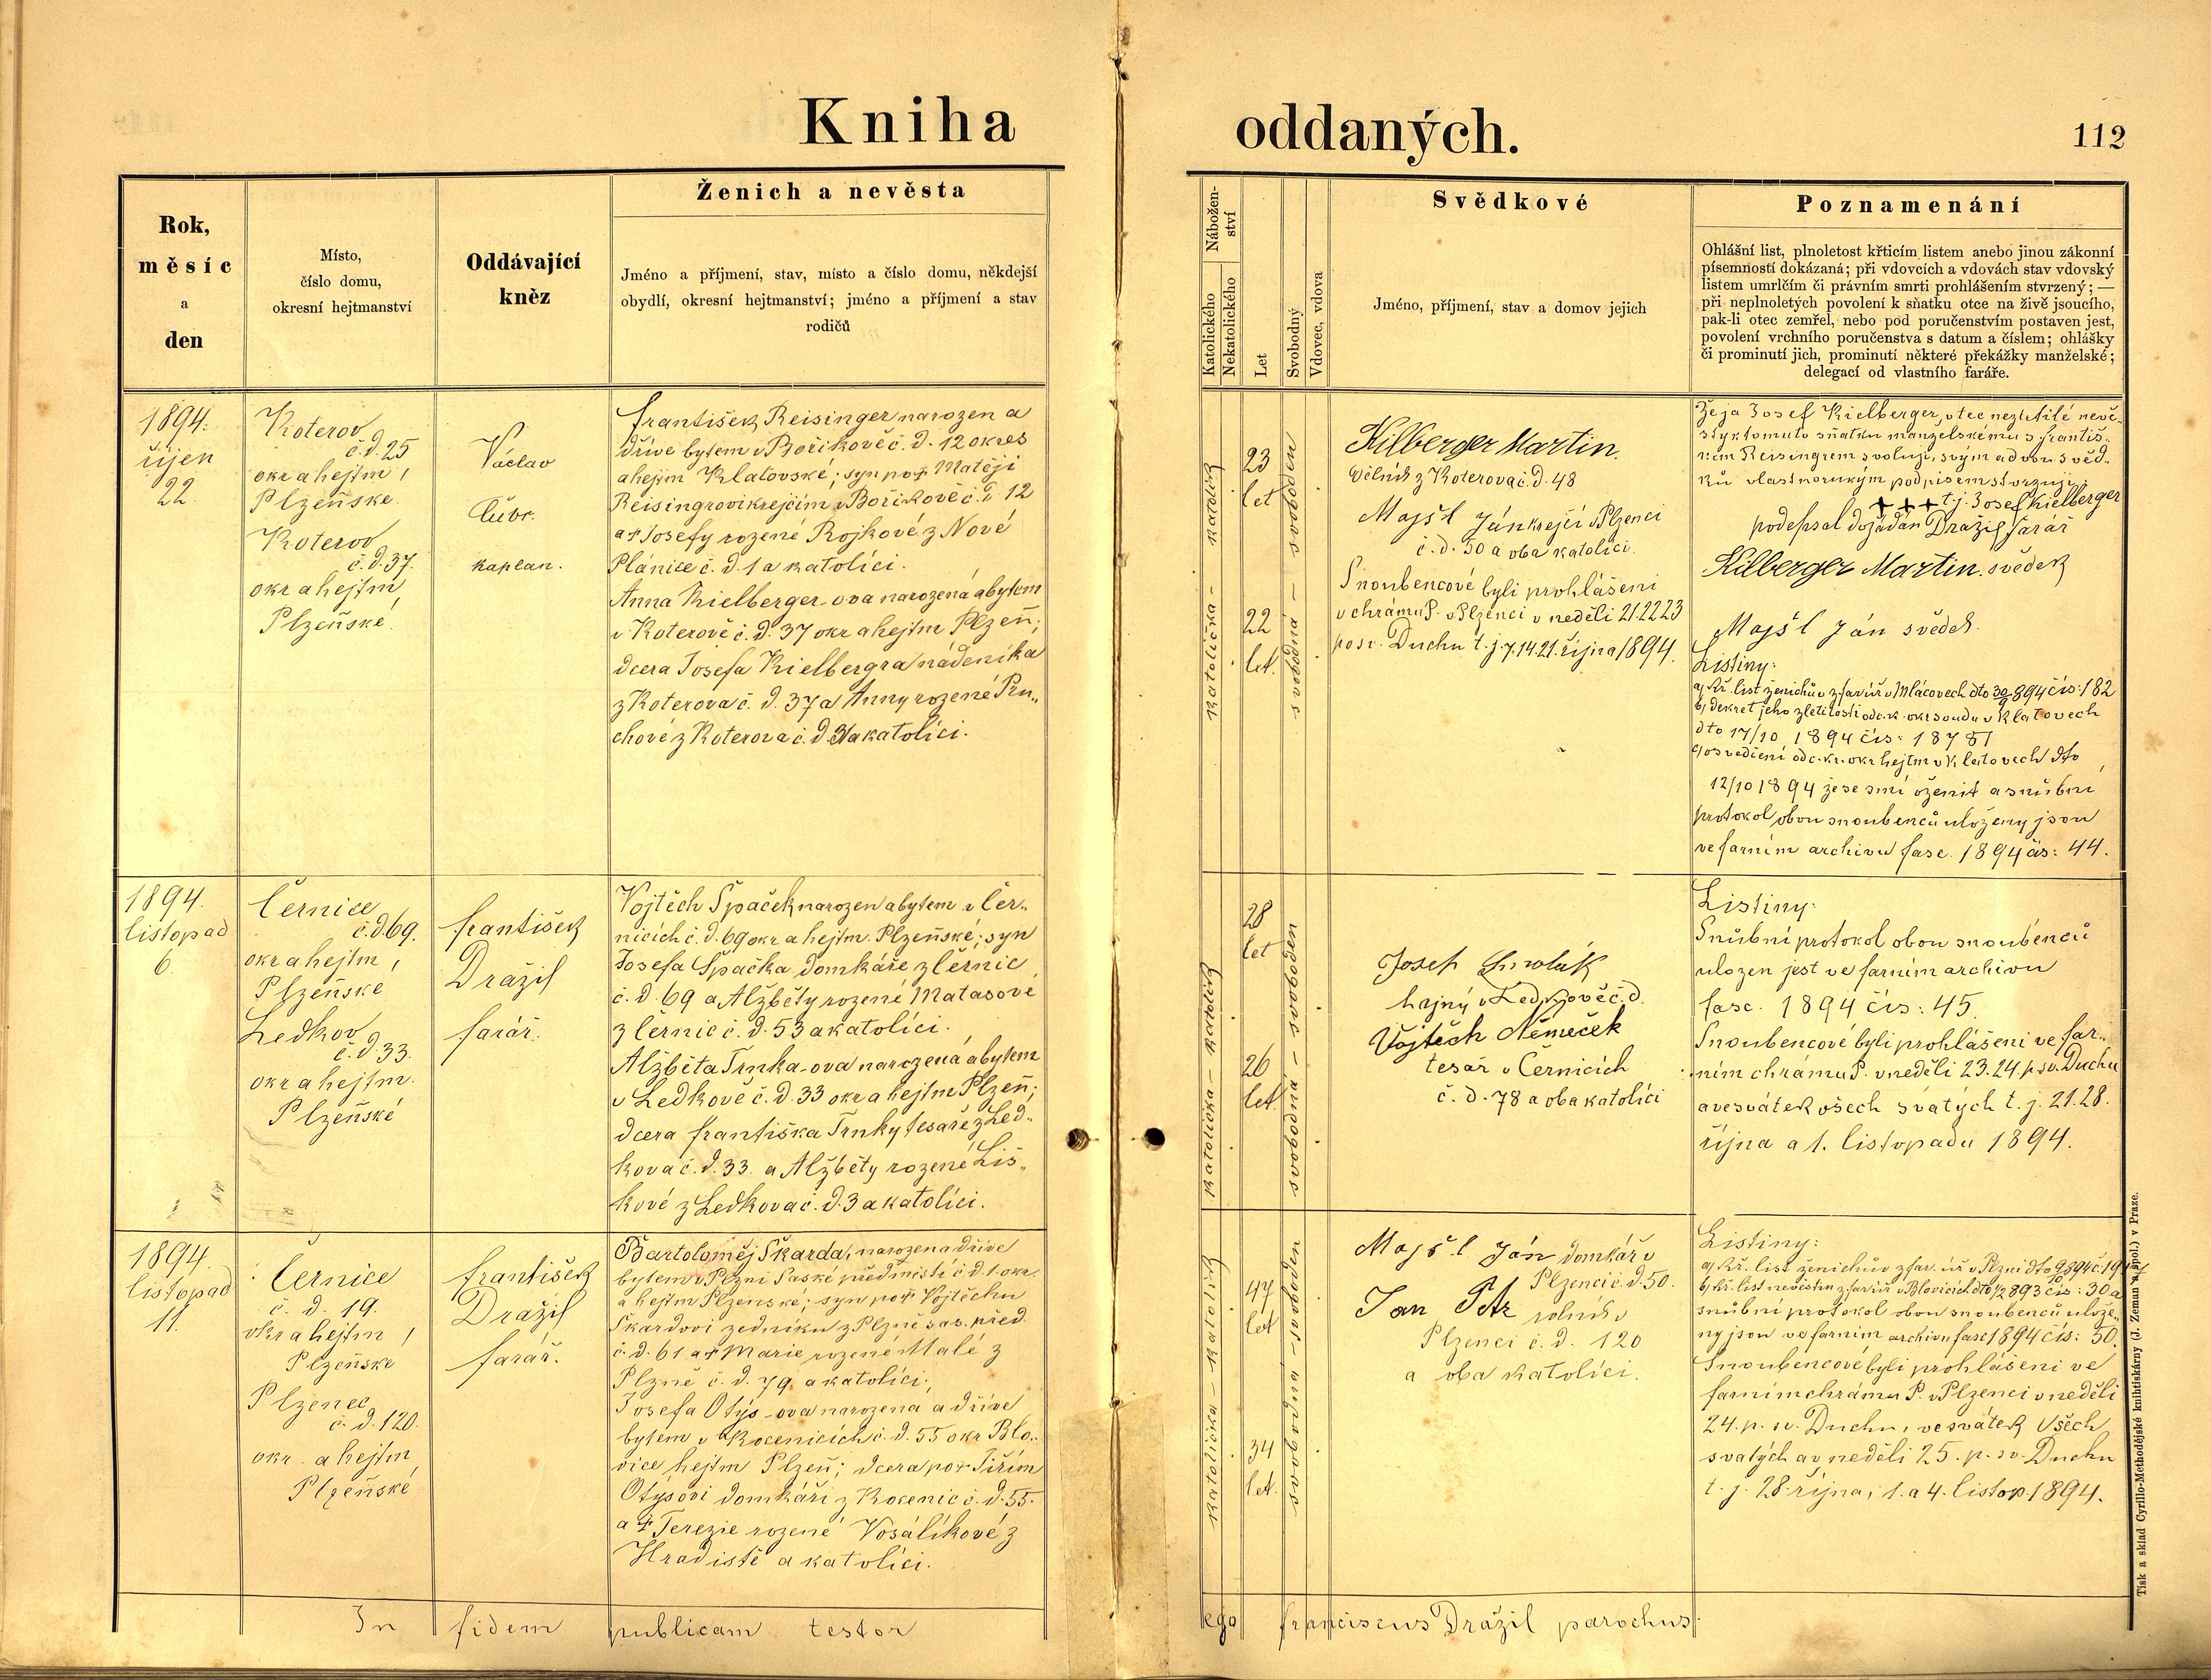 Kniha oddaných.
112
Rok,
měsíc
a
den
Místo,
číslo domu,
okresní hejtmanství
Oddávající
kněz
Ženich a nevěsta
Jméno a příjmení, stav, místo a číslo domu, někdejší
obydlí, okresní hejtmanství; jméno a příjmení a stav
rodičů
Nábožen-
ství
Katolického
Nekatolického
Let
Svobodný
Vdovec, vdova
Svědkové
Jméno, příjmení, stav a domov jejich
Poznamenání
Ohlášní list, plnoletost křticím listem anebo jinou zákonní
písemností dokázaná; při vdovcích a vdovách stav vdovský
listem umrlčím či právním smrti prohlášením stvrzený; —
při neplnoletých povolení k sňatku otce na živě jsoucího,
pak-li otec zemřel, nebo pod poručenstvím postaven jest,
povolení vrchního poručenstva s datum a číslem; ohlášky
či prominutí jich, prominutí některé překážky manželské;
delegací od vlastního faráře.
1894.
říjen
22.
Koterov
č.d.25
okr a hejtm,
Plzeňské.
Koterov
č.d.37.
okr a hejtm
Plzeňské.
Václav
Čubr.
kaplan.
František Reisinger narozen a
dříve bytem v Bořikově č. d. 12 okres
a hejtm Klatovské; syn po † Matěji
Reisingrovi krejčím v Bořikově č. d. 12
a † Josefy rozené Rojkové z Nové
Plánice č. d. 1 a katolíci.
Anna Kielberger-ova narozená a bytem
v Koterově č. d. 37 okr a hejtm Plzeň;
dcera Josefa Kielbergra nádeníka
z Koterova č. d. 37 a Anny rozené Pru„
chové z Koterova č. d. a katolíci.
katolička - katolík
23
let
22
let.
svobodná - svoboden
Kilberger Martin.
dělník z Koterova č. d. 48
Majšl Ján krejčí v Plzenci
č. d. 50 a oba katolíci.
Snoubencové byli prohlášeni
v chrámu P. v Plzenci v neděli 21.22 23
po sv. Duchu t. j. 7.14.21. října 1894.
Že já Josef Kielberger, otec nezletilé nevě„
sty k tomuto sňatku manželskému s Františ„
kem Reisingrem svoluji, svým a dvou svěd„
ků vlastnorukým podpisem stvrzuji;
+++ t. j. Josef Kielberger
podepsal dožádán Dražil farář
Kilberger Martin. svědek
Majšl Ján svědek.
Listiny:
a, kř. list ženichův z far. úř. v Mlázovech dto 30/9 894 čís: 182
b, dekret jeho zletilosti od c. k. okr soudu v Klatovech
dto 17/10 1894 čís: 18781
c, osvědčení od c. kr. okr hejtm v Klatovech dto
12/10 1894 že se smí oženit a snubní
protokol obou snoubenců uloženy jsou
ve farním archivu fasc. 1894 čís: 44.
1894.
listopad
6.
Černice
č. d 69.
okr a hejtm,
Plzeňské
Ledkov
č. d. 33.
okr a hejtm.
Plzeňské
František
Dražil
farář.
Vojtěch Špaček narozen a bytem v Čer„
nicích č. d. 69 okr a hejtm. Plzeňské; syn
Josefa Špačka domkáře z Černic
č. d. 69 a Alžběty rozené Matasové
z Černic č. d. 53 a katolíci.
Alžběta Trnka-ova narozená a bytem
v Ledkově č. d. 33 okr a hejtm Plzeň;
dcera Františka Trnky tesaře z Led„
kova č. d. 33. a Alžběty rozené Liš„
kové z Ledkova č. d. 3 a katolíci.
katolička - katolík
28
let
26
let.
svobodná - svoboden
Josef Smolák
hajný v Ledkově č. d.
Vojtěch Němeček
tesař v Černicích
č. d. 78 a oba katolíci
Listiny:
Snubní protokol obou snoubenců
uložen jest ve farním archivu
fasc. 1894 čís: 45.
Snoubencové byli prohlášeni ve far„
ním chrámu P. v neděli 23. 24. p. sv. Duchu
a ve svátek všech svatých t. j. 21. 28.
října a 1. listopadu 1894.
1894.
listopad
11.
Černice
č. d. 19.
okr a hejtm,
Plzeňské
Plzenec
č. d. 120.
okr. a hejtm
Plzeňské
František
Dražil
farář.
Bartoloměj Škarda, narozen a dříve
bytem v Plzni Saské předměstí č d. 1. okr.
a hejtm Plzeňské; syn po † Vojtěchu
Škardovi zedníku z Plzně sas. před.
č. d. 61 a † Marie rozené Malé z
Plzně č. d. 79. a katolíci.,
Josefa Otýs-ova narozena a dříve
bytem v Kocenicích č. d. 55 okr Blo„
vice hejtm Plzeň; dcera po † Jiřím
Otýsovi domkáři z Kocenic č. d. 55.
a † Terezie rozené Vosalíkové z
Hradiště a katolíci.
katolička - katolík
47
let
34
let.
svobodná - svoboden
Majšl Ján domkář v
Plzenci č. d. 50.
Jan Petr rolník v
Plzenci č. d. 120
a oba katolíci.
Listiny:
a, kř. list ženichův z far. úř. v Plzni
b, kř. list nevěstin z far. úř. v Blovicích
snubní protokol obou snoubenců ulože„
ny jsou ve farním archivu fasc 1894 čís: 50.
Snoubencové byli prohlášeni ve
farním chrámu P. v Plzenci v neděli
24. p. sv. Duchu, ve svátek Všech
svatých a v neděli 25. p. sv. Duchu
t. j. 28. října, 1. a 4. listop. 1894.
In fidem publicam testor ego Franciscus Dražil parochus.
Tisk a sklad Cyrillo-Methodějské knihtiskárny (J. Zeman a spol.) v Praze.